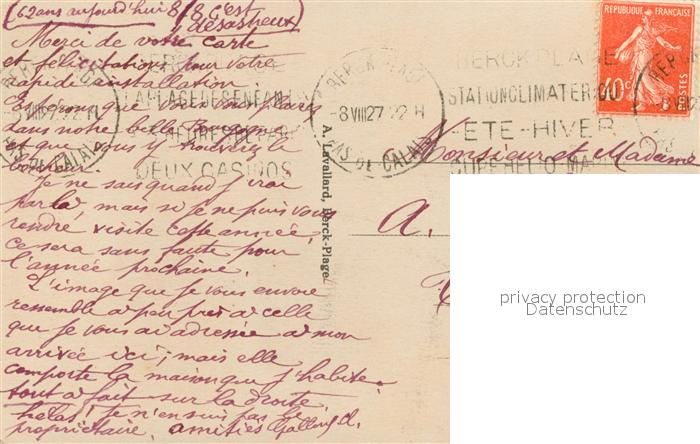 (62 ans aujourd'hui 8/8 c'est
désastreux)
Merci de votre carte
et félicitations pour votre
rapide installation.
Espérons que vous vous plairez
dans notre belle
et que vous y trouverez le
bonheur.
Je ne sais quand j'irai
par là, mais si je ne puis vous
rendre visite cette année,
ce sera sans faute pour
l'année prochaine.
L'image que je vous envoie
ressemble à peu près à celle
que je vous ai adressée à mon
arrivée ici; mais elle
comporte la maison que j'habite
tout à fait sur la droite,
hélas! je n'en suis pas le
propriétaire. amitiés
A. Lavallard, Berck-Plage
BERCK PLAGE
-8 VIII 27 22 H
PAS-DE-CALAIS
LA PLAGE DE
HEUREUSE
DEUX CASINOS
BERCK PLAGE
STATION CLIMATERIQUE
-ETE-HIVER
CURE HELIO MARINE
REPUBLIQUE FRANÇAISE
40c
POSTES
Monsieur et Madame
A.
privacy protection
Datenschutz